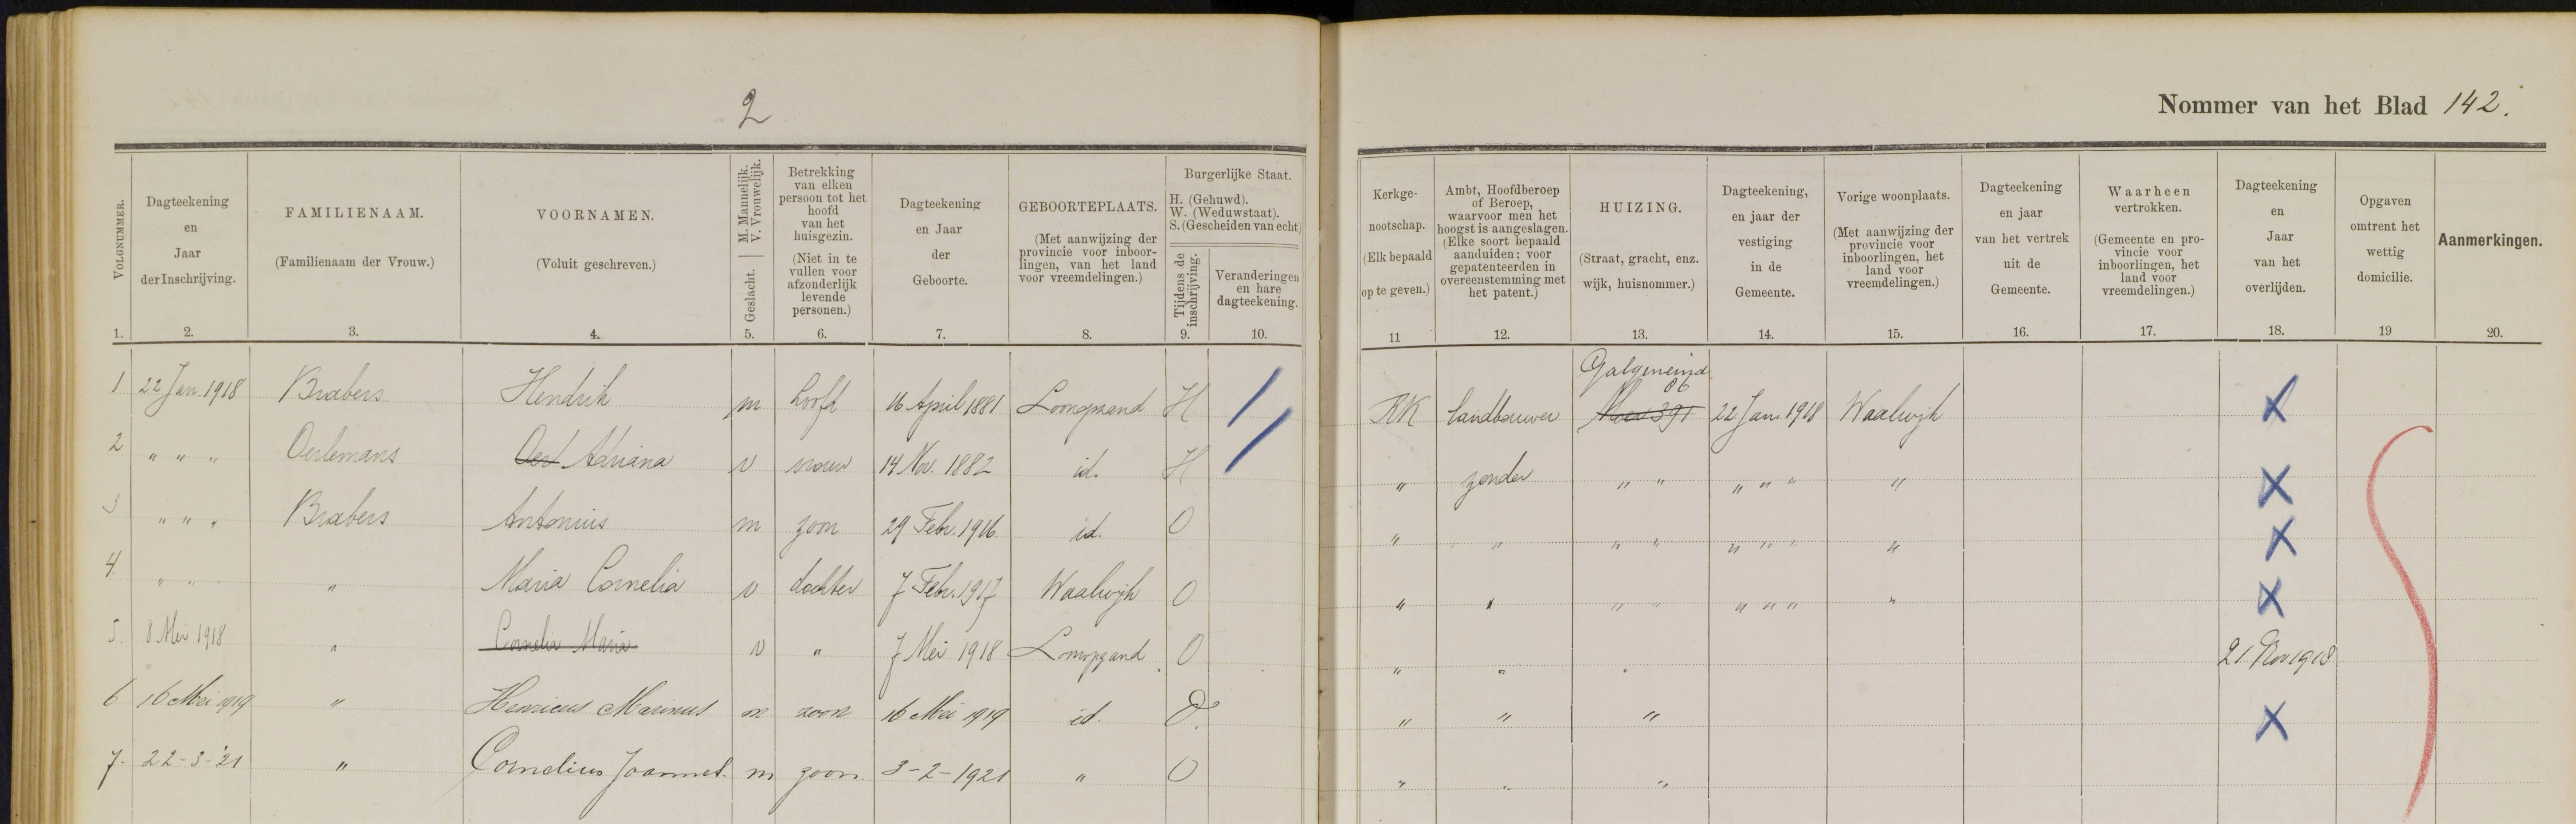 2
Nommer van het Blad 142.
VOLGNUMMER.
1.
Dagteekening
en
Jaar
der Inschrijving.
2.
FAMILIENAAM.
(Familienaam der Vrouw.)
3.
VOORNAMEN.
(Voluit geschreven.)
4.
Geslacht.
M. Mannelijk.
V. Vrouwelijk.
5.
Betrekking
van elken
persoon tot het
hoofd
van het
huisgezin.
(Niet in te
vullen voor
afzonderlijk
levende
personen.)
6.
Dagteekening
en Jaar
der
Geboorte.
7.
GEBOORTEPLAATS.
(Met aanwijzing der
provincie voor inboor-
lingen, van het land
voor vreemdelingen.)
8.
Burgerlijke Staat.
H. (Gehuwd).
W. (Weduwstaat).
S. (Gescheiden van echt)
Tijdens de
inschrijving.
9.
Veranderingen
en hare
dagteekening.
10.
Kerkge-
nootschap.
(Elk bepaald
op te geven.)
11
Ambt, Hoofdberoep
of Beroep,
waarvoor men het
hoogst is aangeslagen.
(Elke soort bepaald
aanduiden; voor
gepatenteerden in
overeenstemming met
het patent.)
12.
HUIZING.
(Straat, gracht, enz.
wijk, huisnommer.)
13.
Dagteekening,
en jaar der
vestiging
in de
Gemeente.
14.
Vorige woonplaats.
(Met aanwijzing der
provincie voor
inboorlingen, het
land voor
vreemdelingen.)
15.
Dagteekening
en jaar
van het vertrek
uit de
Gemeente.
16.
Waarheen
vertrokken.
(Gemeente en pro-
vincie voor
inboorlingen, het
land voor
vreemdelingen.)
17.
Dagteekening
en
Jaar
van het
overlijden.
18.
Opgaven
omtrent het
wettig
domicilie.
19
Aanmerkingen.
20.
Galgeneind
86
1 22 Jan. 1918 Brabers Hendrik m hoofd 16 April 1881 Loonopzand H RK landbouwer 391 22 Jan. 1918 Waalwijk X
2 " " " Oerlemans Oerl Adriana v vrouw 14 Nov. 1882 id. H " zonder " " " " " " X
3 " " " Brabers Antonius m zoon 29 Febr. 1916 id. O " " " " " " " " X
4. " " " Maria Cornelia v dochter 7 Febr. 1917 Waalwijk O " " " " " " " " X
5. 8 Mei 1918 " Cornelia Maria v " 7 Mei 1918 Loonopzand O " " " 21 Nov 1918
6 16 Mei 1919 " Henricus Marinus m zoon 16 Mei 1919 id. O. " " " X
7. 22-3-'21 " Cornelius Joannes. m zoon. 3-2-1921 " O " " "